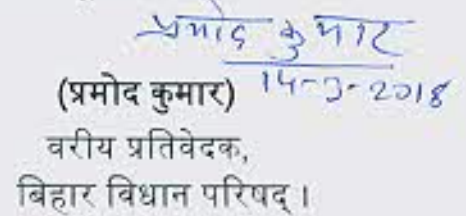 प्रमोद कुमार
14-3-2018
(प्रमोद कुमार)
वरीय प्रतिवेदक,
बिहार विधान परिषद् ।